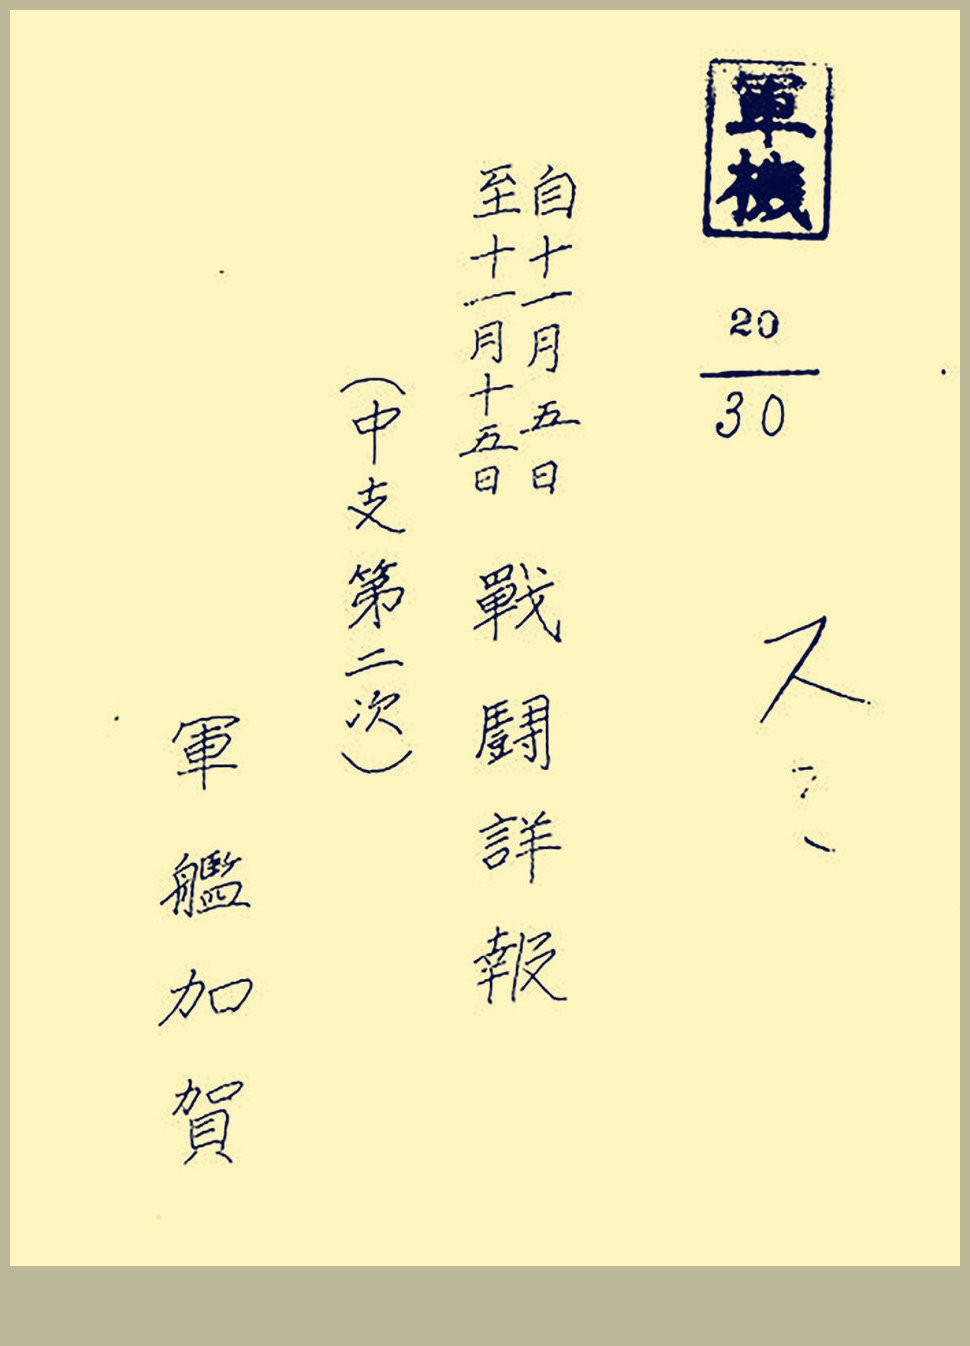 軍機
20
30
自十一月五日
至十一月十五日
戰鬪詳報
(中支第二次)
軍艦加賀